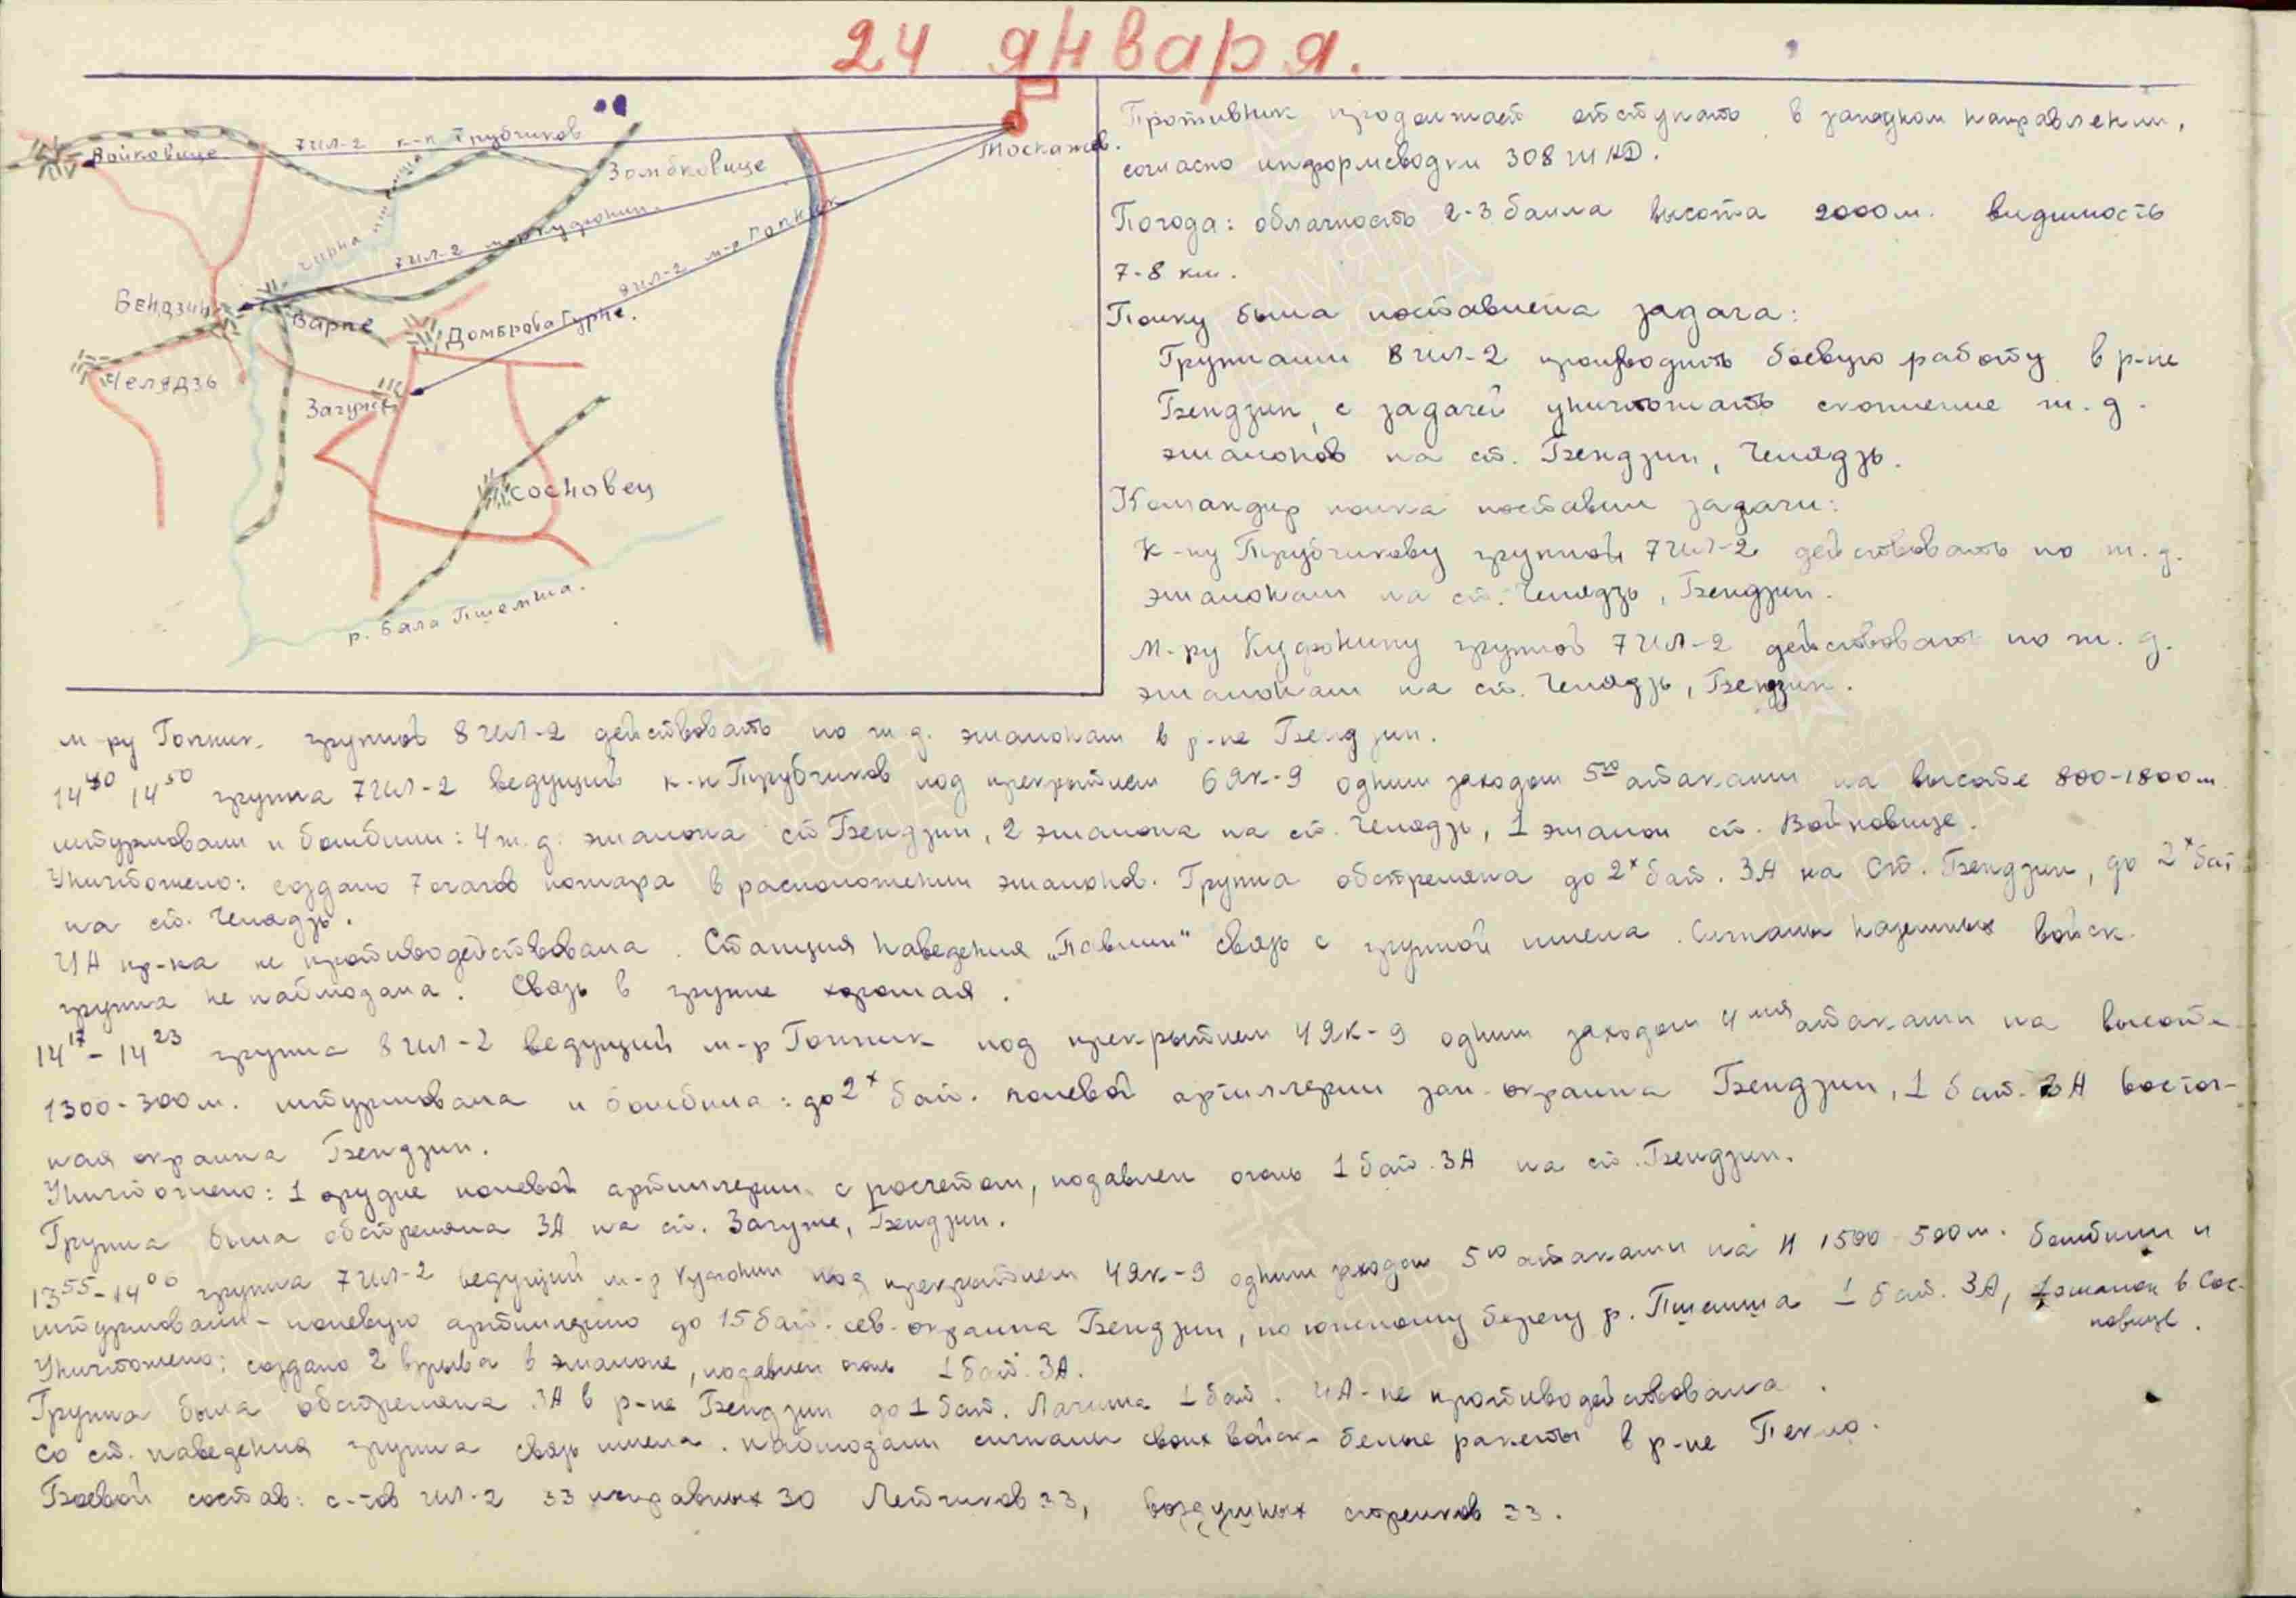 24 января.
Войковице
7 ИЛ-2 к-н Трубчиков
Москажев.
Зомбковице
Чарна
7 ИЛ-2 м-р Куфонин.
8 ИЛ-2 м-р Попник
Бендзин
Варпе
Домброва Гурне.
Челядзь
Загуже
Сосновец
р. Бяла Пшемша.
Противник продолжает отступать в западном направлении,
согласно информсводки 308 ШАД.
Погода: облачность 2-3 балла высота 2000 м. видимость
7-8 км.
Полку была поставлена задача:
Группами 8 ИЛ-2 производить боевую работу в р-не
Бендзин, с задачей уничтожать скопление ж.д.
эшалонов на ст. Бендзин, Челядзь.
Командир полка поставил задачи:
К-ну Трубчикову группой 7 ИЛ-2 действовать по ж.д.
эшалонам на ст. Челядзь, Бендзин.
М-ру Куфонину группой 7 ИЛ-2 действовать по ж.д.
эшалонам на ст. Челядзь, Бендзин.
м-ру Попник группой 8 ИЛ-2 действовать по ж.д. эшалонам в р-не Бендзин.
14 40 14 50 группа 7 ИЛ-2 ведущий к-н Трубчиков под прекрытием 6 ЯК-9 одним заходом 5ю атаками на высоте 800-1800 м
штурмовали и бомбили: 4 ж.д. эшалона ст Бендзин, 2 эшалона на ст. Челядзь, 1 эшалон ст. Войковице.
Уничтожено: создано 7 очагов пожара в расположении эшалонов. Группа обстреляна до 2х бат. ЗА на ст. Бендзин, до 2х бат
на ст. Челядзь.
ИА пр-ка не противодействовала. Станция наведения „Павлин" связь с группой имела. Сигналы наземных войск
группа не наблюдала. Связь в группе хорошая.
14 17 - 14 23 группа 8 ИЛ-2 ведущий м-р Попник под прекрытием 4 ЯК-9 одним заходом 4мя атаками на высоте
1300-300 м. штурмовала и бомбила: до 2х бат. полевой артиллерии зап. окраина Бендзин, 1 бат. ЗА восточ-
ная окраина Бендзин.
Уничтожено: 1 орудие полевой артиллерии с росчетом, подавлен огонь 1 бат. ЗА на ст. Бендзин.
Группа была обстреляна ЗА на ст. Загуже, Бендзин.
13 55 - 14 00 группа 7 ИЛ-2 ведущий м-р Куфонин под прекрытием 4 ЯК-9 одним заходом 5ю атаками на Н 1500-500 м. бомбили и
штурмовали - полевую артиллерию до 15 бат. сев. окраина Бендзин, по южному берегу р. Пшемша 1 бат. ЗА, 1 эшалон в Сос-
новице.
Уничтожено: создано 2 взрыва в эшалоне, подавлен огонь 1 бат. ЗА.
Группа была обстреляна ЗА в р-не Бендзин до 1 бат. Лагиша 1 бат. ИА - не противодействовала.
Со ст. наведения группа связь имела. Наблюдали сигналы своих войск - белые ракеты в р-не Пекло.
Боевой состав: с-тов ИЛ-2 33 исправных 30 Летчиков 33, воздушных стрелков 33.